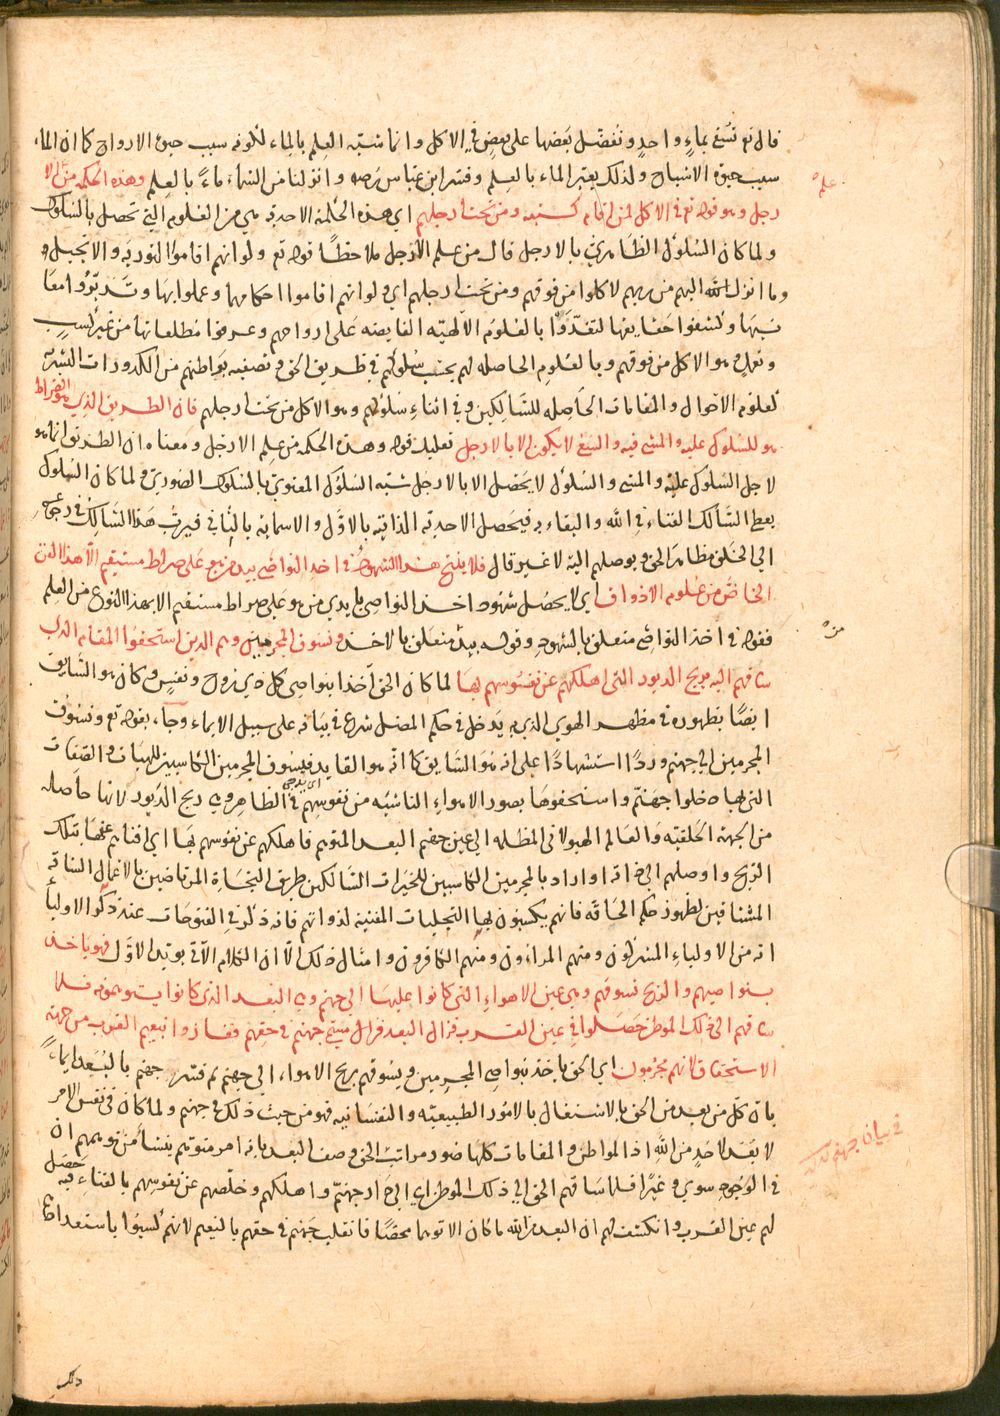 قال تع تسقى بماءٍ واحدٍ ونفضّل بعضها على بعضٍ في الاكل وانما شبّه العلم بالماء لكونه سبب حيوة الارواح كما ان الماء
سبب حيوة الاشباح ولذلك يعبّر الماء بالعلم وفسّر ابن عبّاس رضه وانزلنا من السّماء ماءً بالعلم وهذه الحكمة من علم الا
رجل وهو قوله تع في الاكل لمن اقام كتبه ومن تحت ارجلهم اي هذه الحكمة الاحدية هي من العلوم التي تحصل بالسّلوك
ولما كان السّلوك الظّاهريّ بالارجل قال من علم الارجل ملاحظًا قوله تع ولو انهم اقاموا التورية والانجيل و
وما انزل اليهم من ربهم لاكلوا من فوقهم ومن تحت ارجلهم اي ولو انهم اقاموا احكامها وعملوا بها وتدبّروا معا
نيها وكشفوا حقايقها لتغذّوا بالعلوم الالهيّة الفايضة على ارواحهم وعرفوا مطلعاتها من غير كسبٍ
وتعمل وهو الاكل من فوقهم وبالعلوم الحاصلة لهم بحسب سلوكهم في طريق الحق وتصفية بواطنهم من الكدورات البشريّة
كعلوم الاحوال والمقامات الحاصلة للسّالكين في اثناء سلوكهم وهو الاكل من تحت ارجلهم فان الطريق الذي هو الصراط
هو للسّلوك عليه والمشي فيه والسّعي لا يكون الا بالارجل تعليل قوله وهذه الحكمة من علم الارجل ومعناه ان الطريق انما هو
لاجل السّلوك عليه والمشي والسّلوك لا يحصل الا بالارجل شبّه السّلوك المعنويّ بالسّلوك الصّوريّ ولما كان السّلوك
يعطي السّالك الفناء في الله والبقاء به فيحصل الاحدية الذاتية بالاوّل والاسمائية بالثاني فيربّ هذا السّالك في رجوعه
الى الخلق مظاهر الحق ويوصلهم اليه لا غير قال فلا ينتج هذا الشهود في اخذ النواصي بيد من هو على صراط مستقيم الّا هذا الفن
الخاصّ من علوم الاذواق اي لا يحصل شهود اخذ النواصي بايدي من هو على صراط مستقيم الا بهذا النّوع من العلم
فقوله في اخذ النواصي متعلق بالشهود وقوله بيد متعلق بالاخذ ونسوق المجرمين وهم الذين استحقوا المقام الذي
ساقهم اليه بريح الدبور التي اهلكهم عن نفوسهم بها لما كان الحق آخذا بنواصي كل ذي روح ونفسٍ وكان هو السّايق
ايضًا بظهوره في مظهر الهوى الذي به يدخل في حكم المضل شرع في بيانه على سبيل الايماء وجاء بقوله تع ونسوق
المجرمين الى جهنم وردًا استشهادًا على انه هو السّايق كما انه هو القايد فيسوق المجرمين الكاسبين للهيأت والصّفات
التي بها دخلوا جهنّم واستحقوها بصور الاهواء الناشئة من نفوسهم في الظاهر وهي ريح الدّبور لانها حاصلة
من الجهة الخلقيّة والعالم الهيولاني المظلمة الى عين جهنم البعد المتوهم فاهلكهم عن نفوسهم بها اي افناهم عنها بتلك
الرّيح واوصلهم الى ذاته او اراد بالمجرمين الكاسبين للخيرات السّالكين طريق النجاة المرتاضين بالاعمال الشاقّة
المشتاقين لظهور حكم الحاقة فانهم يكسبون بها التجليات المفنية لذواتهم فانه ذكر في الفتوحات عند ذكر الاولياء
انه من الاولياء المشركون ومنهم المراؤن ومنهم الكافرون وامثال ذلك الّا ان الكلام الآتي يؤيد الاوّل فهو ياخذ
بنواصيهم والريح تسوقهم وهي عين الاهواء التي كانوا عليها الى جهنم وهي البعد الذي كانوا يتوهمونه فلما
ساقهم الى ذلك الموطن حصلوا في عين القرب فزال البعد فزال مسمّى جهنم في حقهم ففازوا بنعيم القرب من جهة
الاستحقاق لانهم مجرمون اي الحق ياخذ بنواصي المجرمين ويسوقهم بريح الاهواء الى جهنم ثم فسّر جهنم بالبعد ايماءً
بان كلّ من بعد من الحق بالاشتغال بالامور الطبيعيّة والنفسانية فهو من حيث ذلك في جهنم ولما كان في نفس الامر
لا بعد لاحدٍ من الله اذ المواطن والمقامات كلها صور مراتب الحق وصف البعد بانه امر متوهم ينشأ من توهمهم ان
في الوجود سوى وغيرًا فلما ساقهم الحق الى ذلك الموطن اي الى دار جهنّم واهلكهم وخلّصهم عن نفوسهم بالفناء فيه حصل
لهم عين القرب وانكشف لهم ان البعد من الله ما كان الا توهما محضًا فانقلب جهنم في حقهم بالنعيم لانهم كسبوا باستعدادهم
علم
من
في بيان جهنم
ذلك